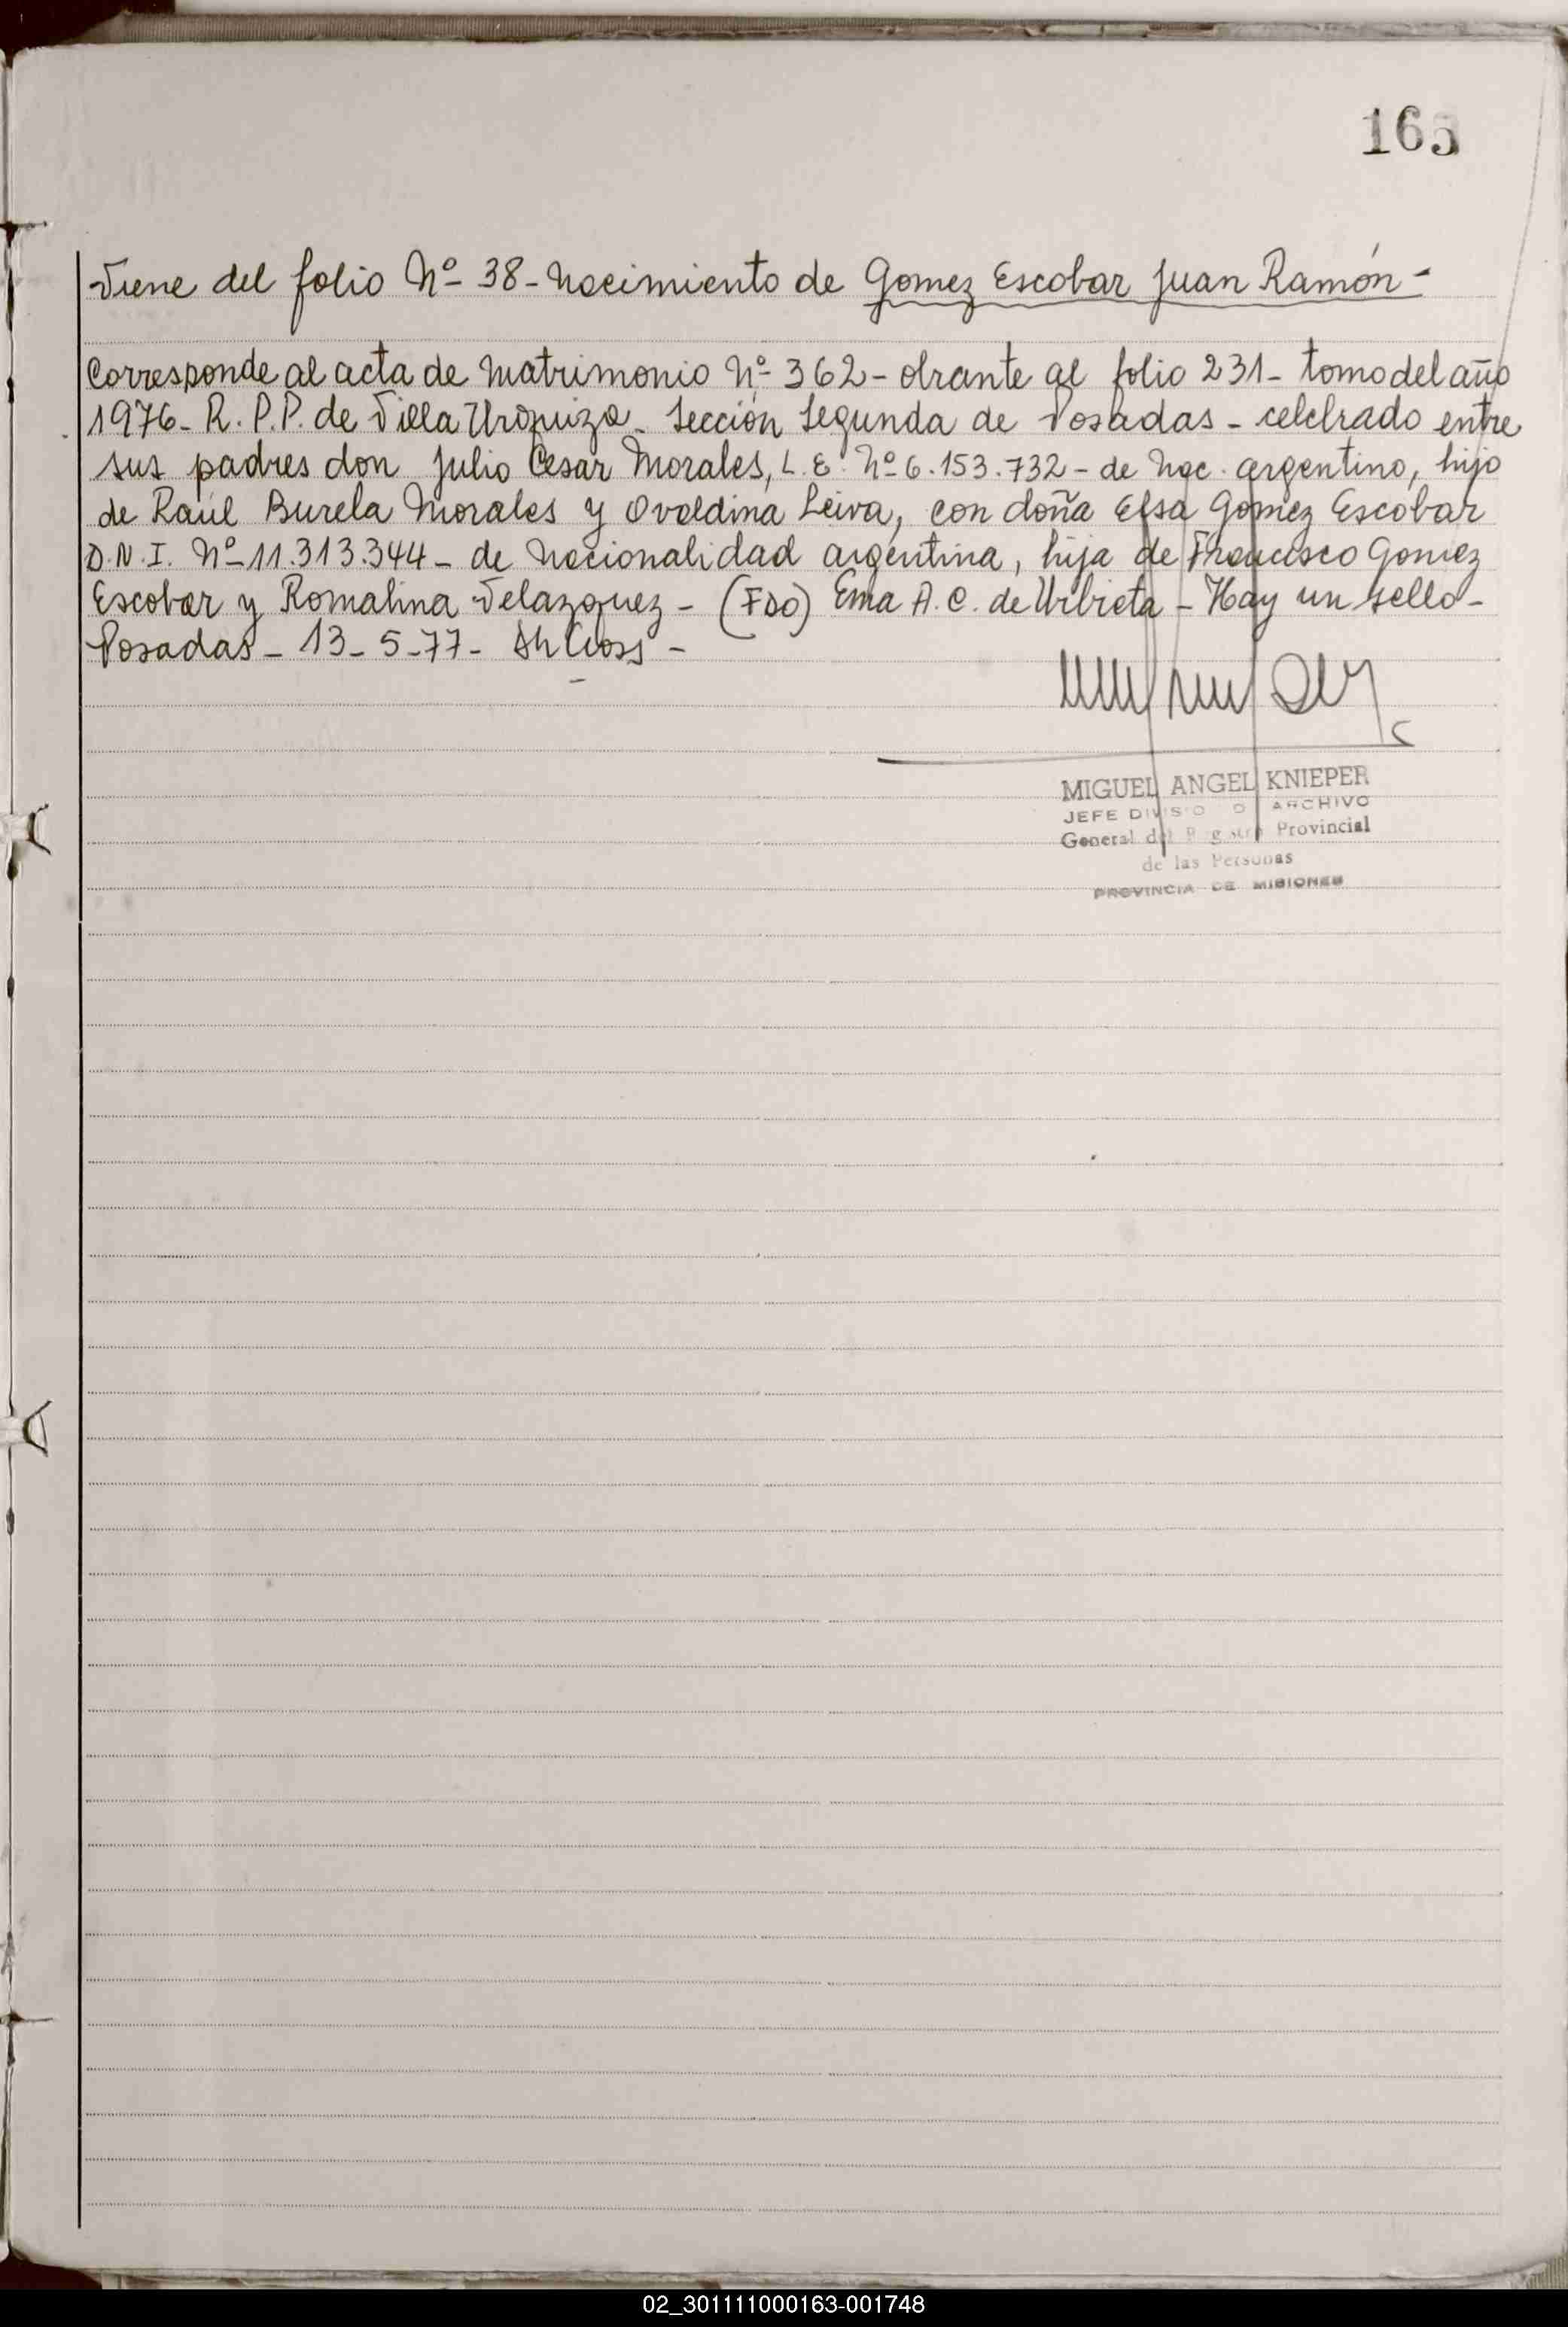 165
Viene del folio Nº 38 - Nacimiento de Gomez Escobar Juan Ramón -
Corresponde al acta de Matrimonio Nº 362 - obrante al folio 231 - tomo del año
1976 - R. P.P. de Villa Urquiza - Sección Segunda de Posadas - celebrado entre
sus padres don Julio Cesar Morales, L.E. Nº 6.153.732 - de Nac. argentino, hijo
de Raúl Burela Morales y Ovaldina Leiva, con doña Elsa Gomez Escobar
D.N.I. Nº 11.313.344 - de Nacionalidad argentina, hija de Francisco Gomez
Escobar y Romalina Velazquez - (FDO) Ema A. C. de Urbieta - Hay un sello -
Posadas - 13 - 5 - 77 -
MIGUEL ANGEL KNIEPER
JEFE DIVISIO D ARCHIVO
General del Registro Provincial
de las Personas
PROVINCIA DE MISIONES
02_301111000163-001748